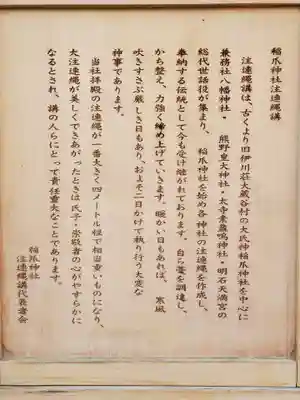 稲爪神社注連縄講
注連縄講は、古くより旧伊川荘大蔵谷村の大氏神稲爪神社を中心に
兼務社八幡神社・熊野皇大神社・太寺素盞鳴神社・明石天満宮の
総代世話役が集まり、稲爪神社を始め各神社の注連縄を作成し、
奉納する伝統として今も受け継がれております。自ら藁を調達し、
から整え、力強く締め上げていきます。暖かい日もあれば、寒風
吹きすさぶ厳しき日もあり、およそ二日かけて執り行う大変な
神事であります。
当社拝殿の注連縄が一番大きく四メートル程で相当重いものになり、
大注連縄が美しくできあがったときは氏子・崇敬者の心がやすらかに
なるとされ、講の人らにとって責任重大なことであります。
稲爪神社
注連縄講代表者会